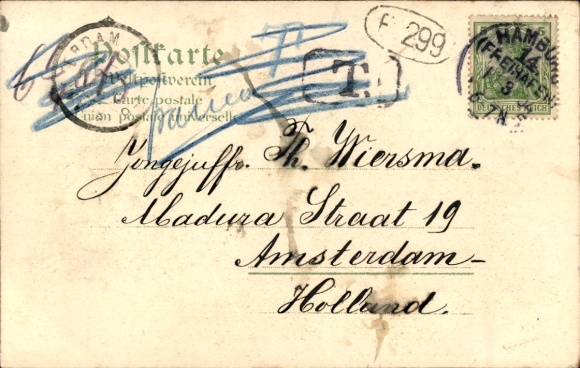 Postkarte
Weltpostverein
Carte postale
union postale universelle
RDAM
T.
299
HAMBURG
14
DEUTSCHES REICH
Jongejuffr. Th. Wiersma.
Madura Straat 19
Amsterdam-
Holland.